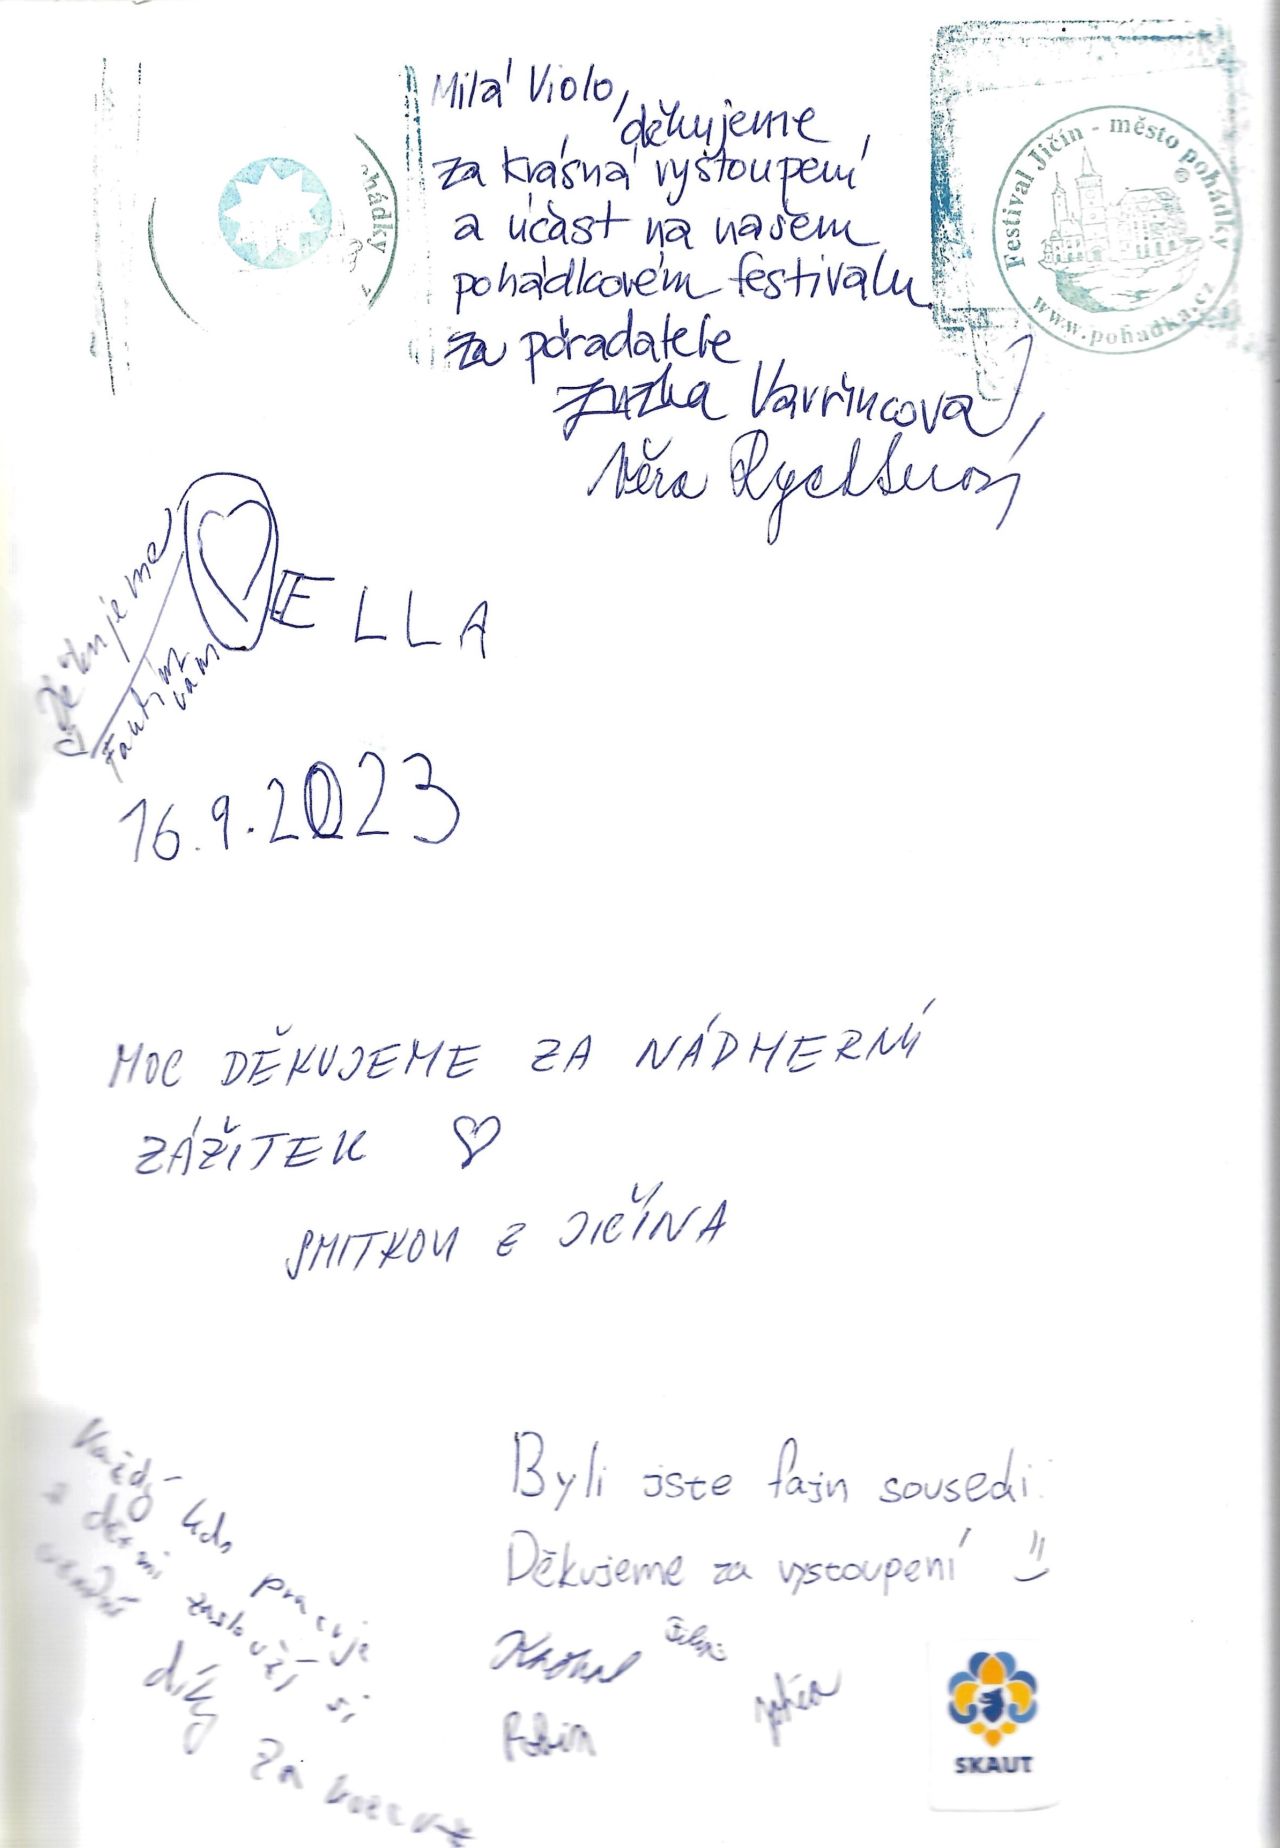 Milá Violo,
děkujeme
za krásná vystoupení
a účast na našem
pohádkovém festivalu
za pořadatele
Zuzka Vavřincová
Věra
Festival Jičín - město pohádky
www.pohadka.cz
hádky
Děkujeme
Fandím
vám
ELLA
16.9.2023
MOC DĚKUJEME ZA NÁDHERNÝ
ZÁŽITEK ♡
SMITKOVI Z JIČÍNA
Každý kdo pracuje
s dětmi zaslouží si
díky za
Byli jste fajn sousedi
Děkujeme za vystoupení
Robin
SKAUT